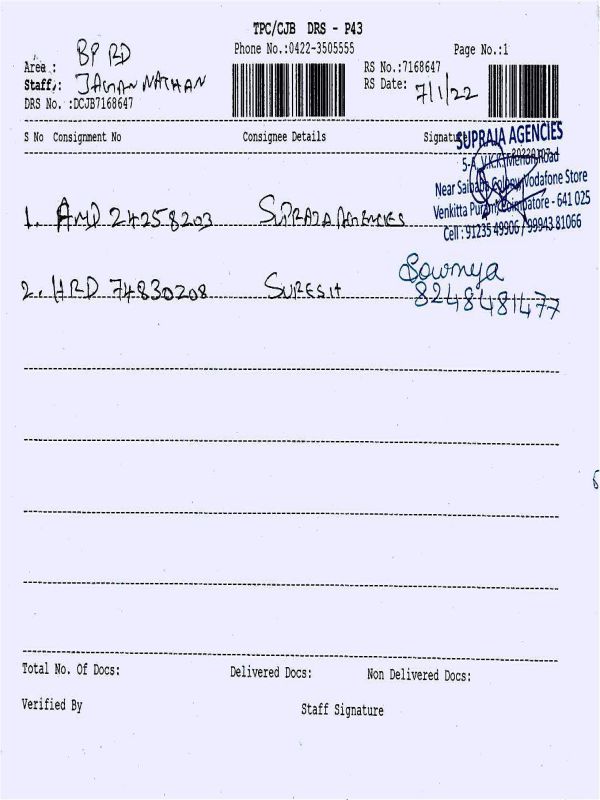 TPC/CJB DRS - P43
BP RD
Phone No.:0422-3505555
Page No.:1
Area :
RS No.:7168647
Staff,: JAGAN NATHAN
RS Date: 7/1/22
DRS No. :DCJB7168647
S No Consignment No Consignee Details Signature
SUPRAJA AGENCIES
5-A, V.K.K. Menon Road
Near Saibaba Colony Vodafone Store
Venkitta Puram, Coimbatore - 641 025
Cell : 91235 49906 / 99943 81066
1. AMD 24258203 SUPRAJA AGENCIES
2. HRD 74830208 SURESH
Sowmya
8248481477
Total No. Of Docs: Delivered Docs: Non Delivered Docs:
Verified By Staff Signature